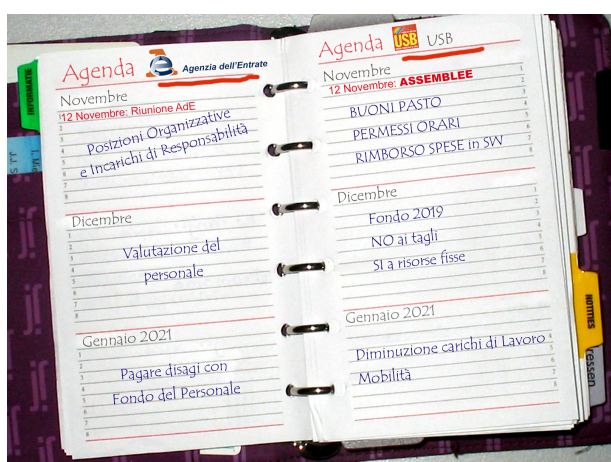 INFORMATIE
Agenda
Agenzia dell'Entrate
Novembre
12 Novembre: Riunione AdE
Posizioni Organizzative
e Incarichi di Responsabilità
Dicembre
Valutazione del
personale
Gennaio 2021
Pagare disagi con
Fondo del Personale
Agenda USB USB
Novembre
12 Novembre: ASSEMBLEE
BUONI PASTO
PERMESSI ORARI
RIMBORSO SPESE in SW
Dicembre
Fondo 2019
NO ai tagli
SI a risorse fisse
Gennaio 2021
Diminuzione carichi di Lavoro
Mobilità
NOTITIES
ressen